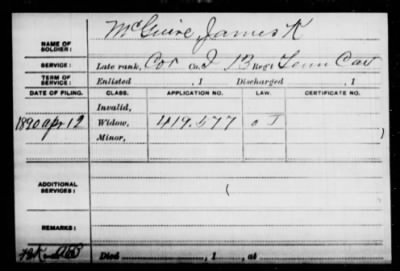 McGuire, James K
NAME OF SOLDIER:
SERVICE: Late rank, Cor Co. I 13 Reg't Tenn Cav
TERM OF SERVICE: Enlisted , 1 Discharged , 1
DATE OF FILING. CLASS. APPLICATION NO. LAW. CERTIFICATE NO.
Invalid,
1890 Apr 12 Widow, 419.577
Minor,
ADDITIONAL SERVICES:
REMARKS:
Died , 1 , at